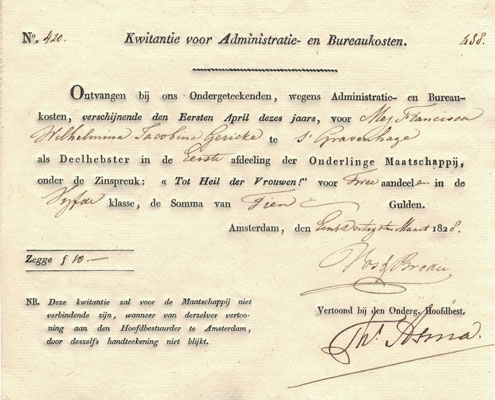 No. 420. Kwitantie voor Administratie- en Bureaukosten. 438.
Ontvangen bij ons Ondergeteekenden, wegens Administratie- en Bureau-
kosten, verschijnende den Eersten April dezes jaars, voor Mej Francisca
Wilhelmina Jacobina Gericke te s' Gravenhage
als Deelhebster in de Eerste afdeeling der Onderlinge Maatschappij,
onder de Zinspreuk: « Tot Heil der Vrouwen!" voor Twee aandeelen in de
Vyfde klasse, de Somma van Tien Gulden.
Amsterdam, den Eenendertigsten Maart 1828.
Zegge ƒ 10.—
NB. Deze kwitantie zal voor de Maatschappij niet
verbindende zijn, wanneer van derzelver vertoo-
ning aan den Hoofdbestuurder te Amsterdam,
door deszelfs handteekening niet blijkt.
Vertoond bij den Onderg. Hoofdbest.
Ths. Asma.